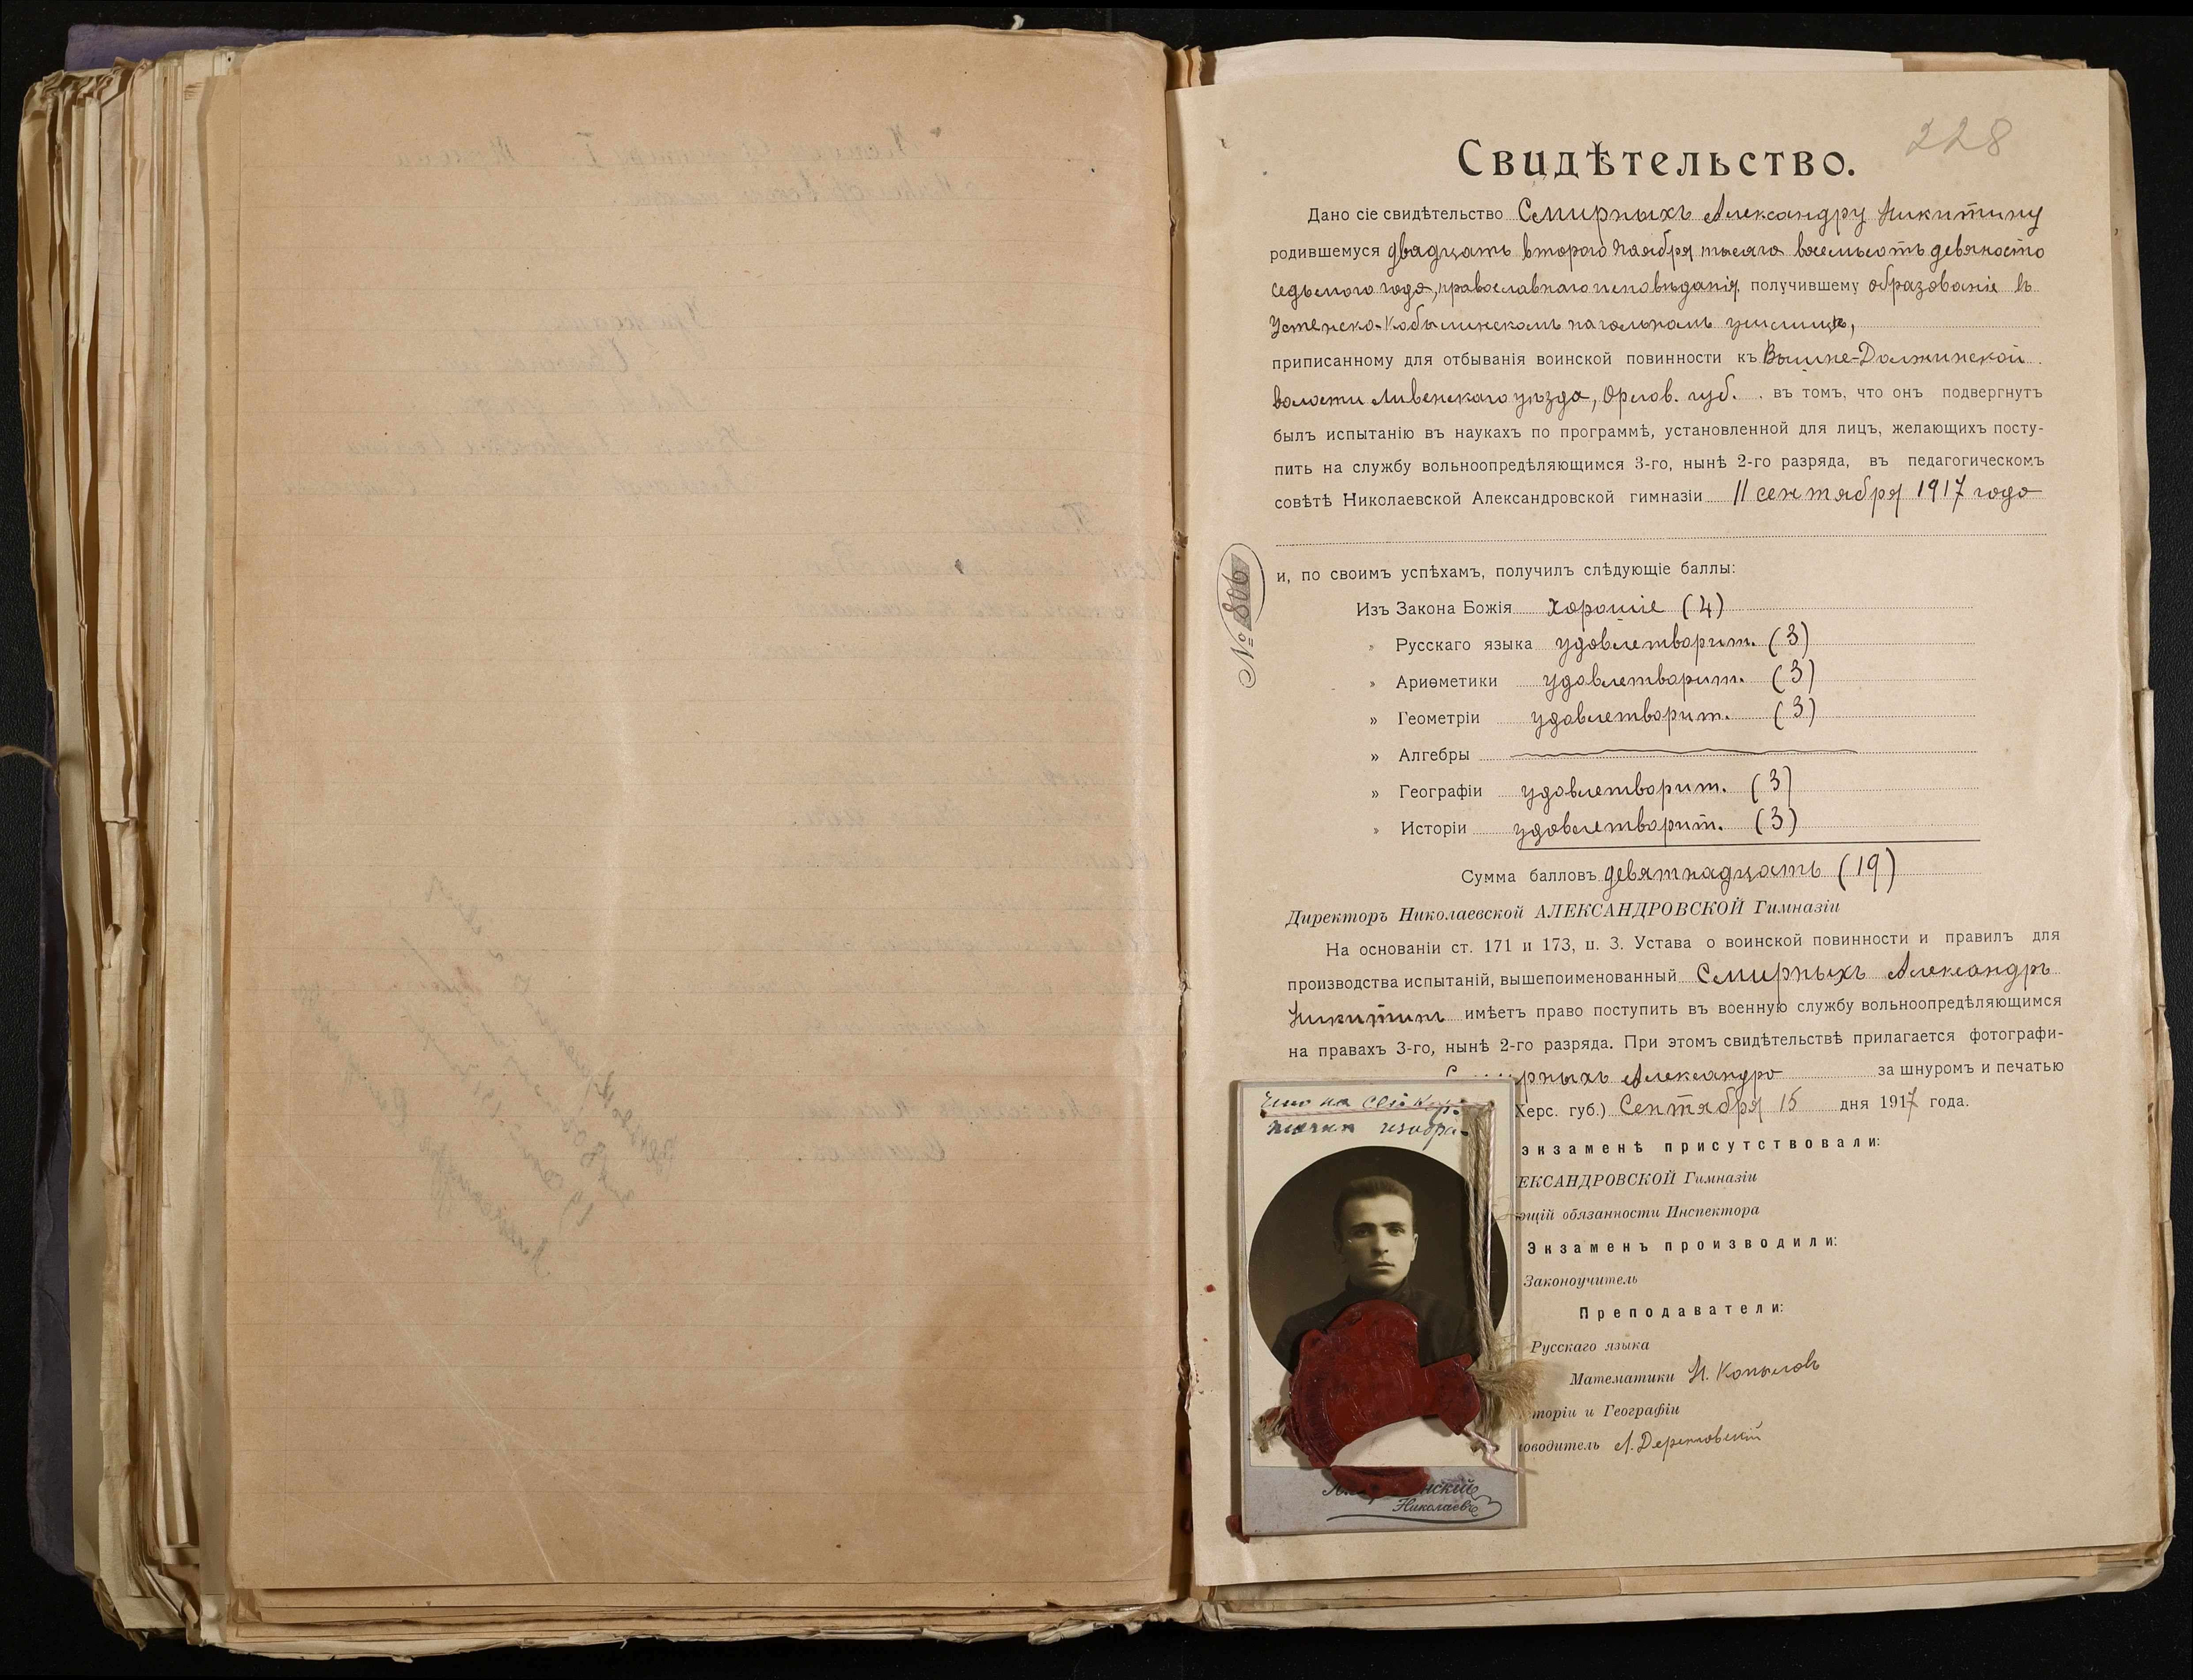 228
Свидѣтельство.
Дано сіе свидѣтельство Смирныхъ Александру Никитину
родившемуся двадцать второго Ноября тысяча восемьсотъ девяносто
седьмого года, православнаго исповѣданія, получившему образованіе въ
Устенско-Кобылинскомъ начальномъ училищѣ,
приписанному для отбыванія воинской повинности къ Вышне-Должинской
волости Ливенскаго уѣзда, Орлов. губ. въ томъ, что онъ подвергнутъ
былъ испытанію въ наукахъ по программѣ, установленной для лицъ, желающихъ посту-
пить на службу вольноопредѣляющимся 3-го, нынѣ 2-го разряда, въ педагогическомъ
совѣтѣ Николаевской Александровской гимназіи 11 сентября 1917 года
№ 806
и, по своимъ успѣхамъ, получилъ слѣдующіе баллы:
Изъ Закона Божія хорошіе (4)
» Русскаго языка удовлетворит. (3)
» Ариѳметики удовлетворит. (3)
» Геометріи удовлетворит. (3)
» Алгебры
» Географіи удовлетворит. (3)
» Исторіи удовлетворит. (3)
Сумма балловъ девятнадцать (19)
Директоръ Николаевской АЛЕКСАНДРОВСКОЙ Гимназіи
На основаніи ст. 171 и 173, п. 3. Устава о воинской повинности и правилъ для
производства испытаній, вышепоименованный Смирныхъ Александръ
Никитинъ имѣетъ право поступить въ военную службу вольноопредѣляющимся
на правахъ 3-го, нынѣ 2-го разряда. При этомъ свидѣтельствѣ прилагается фотографи-
рныхъ Александра за шнуромъ и печатью
Херс. губ.) Сентября 15 дня 1917 года.
экзаменѣ присутствовали:
ЕКСАНДРОВСКОЙ Гимназіи
ющій обязанности Инспектора
Экзаменъ производили:
Законоучитель
Преподаватели:
Русскаго языка
Математики Н. Копыловъ
торіи и Географіи
оводитель
Что на сей кар-
точкѣ изобра-
нскій
Николаевъ